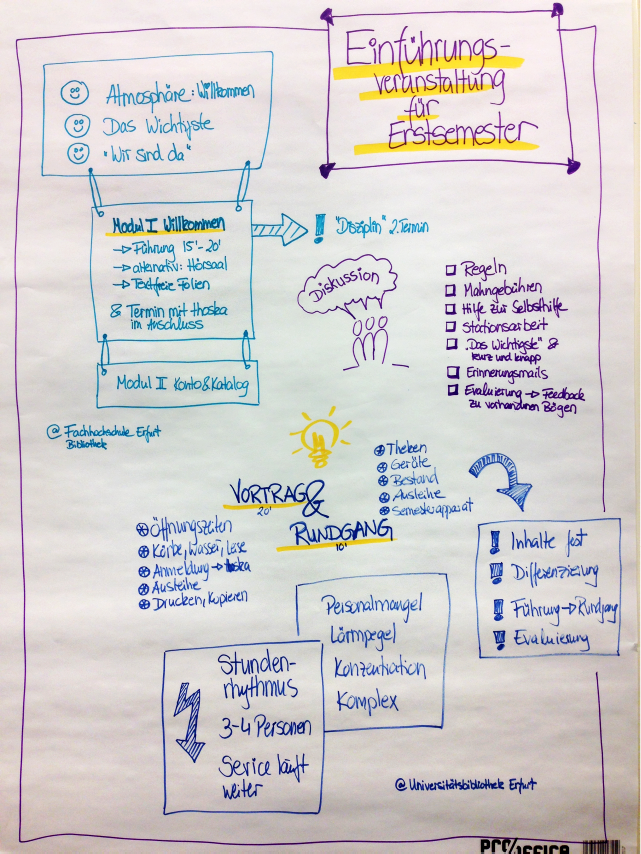 Einführungs-
veranstaltung
für
Erstsemester
Atmosphäre: Willkommen
Das Wichtigste
"Wir sind da"
Modul I Willkommen
→ Führung 15'-20'
→ alternativ: Hörsaal
→ Textfreie Folien
& Termin mit thoska
im Anschluss
! "Disziplin" 2. Termin
Modul II Konto & Katalog
@ Fachhochschule Erfurt
Bibliothek
Diskussion
Regeln
Mahngebühren
Hilfe zur Selbsthilfe
Stationsarbeit
"Das Wichtigste" &
kurz und knapp
Erinnerungsmails
Evaluierung → Feedback
zu vorhandenen Bögen
VORTRAG &
20'
RUNDGANG
10'
Öffnungszeiten
Körbe, Wasser, Lese
Anmeldung → thoska
Ausleihe
Drucken, Kopieren
Theken
Geräte
Bestand
Ausleihe
Semesterapparat
! Inhalte fest
!! Differenzierung
! Führung → Rundgang
! Evaluierung
Personalmangel
Lärmpegel
Konzentration
Komplex
Stunden-
rhythmus
3-4 Personen
Service läuft
weiter
@ Universitätsbibliothek Erfurt